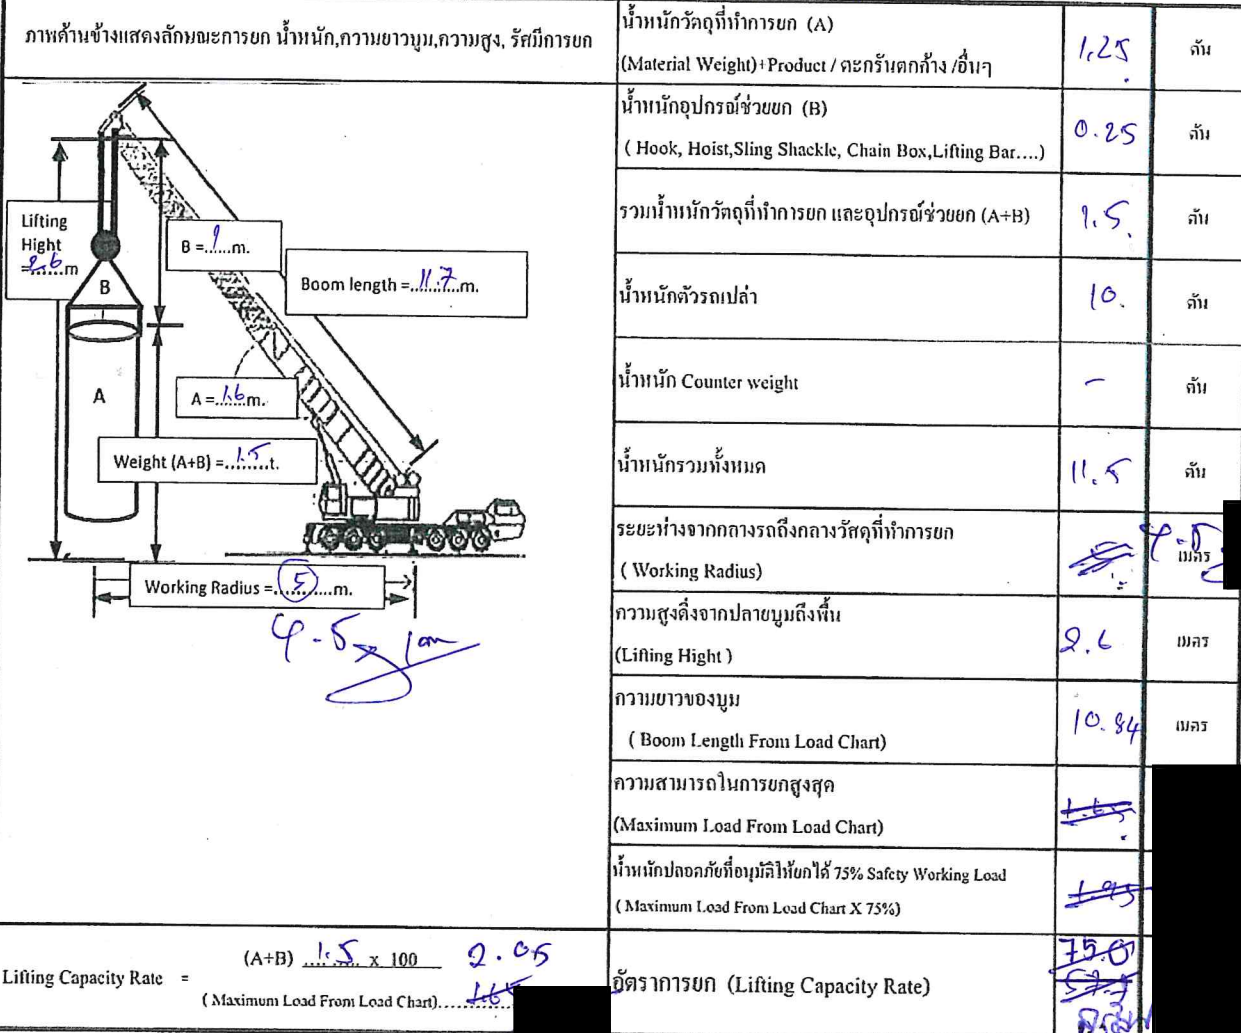 ภาพด้านข้างแสดงลักษณะการยก น้ำหนัก,ความยาวบูม,ความสูง, รัศมีการยก
Lifting
Hight
=2.6m
B =...1...m.
Boom length =..11.7...m.
B
A
A =..1.6..m.
Weight (A+B) =..1.5..t.
Working Radius =...5...m.
4.5
น้ำหนักวัตถุที่ทำการยก (A)
(Material Weight)+Product / ตะกรันตกค้าง /อื่นๆ
1.25 ตัน
น้ำหนักอุปกรณ์ช่วยยก (B)
( Hook, Hoist,Sling Shackle, Chain Box,Lifting Bar....)
0.25 ตัน
รวมน้ำหนักวัตถุที่ทำการยก และอุปกรณ์ช่วยยก (A+B) 1.5 ตัน
น้ำหนักตัวรถเปล่า 10. ตัน
น้ำหนัก Counter weight - ตัน
น้ำหนักรวมทั้งหมด 11.5 ตัน
ระยะห่างจากกลางรถถึงกลางวัสดุที่ทำการยก
( Working Radius)
4.5 เมตร
ความสูงดิ่งจากปลายบูมถึงพื้น
(Lifting Hight )
2.6 เมตร
ความยาวของบูม
( Boom Length From Load Chart)
10.84 เมตร
ความสามารถในการยกสูงสุด
(Maximum Load From Load Chart)
1.65
น้ำหนักปลอดภัยที่อนุมัติให้ยกได้ 75% Safety Working Load
( Maximum Load From Load Chart X 75%)
Lifting Capacity Rate =
(A+B) ..1.5.. x 100 2.05
( Maximum Load From Load Chart)....1.65
อัตราการยก (Lifting Capacity Rate)
75.0